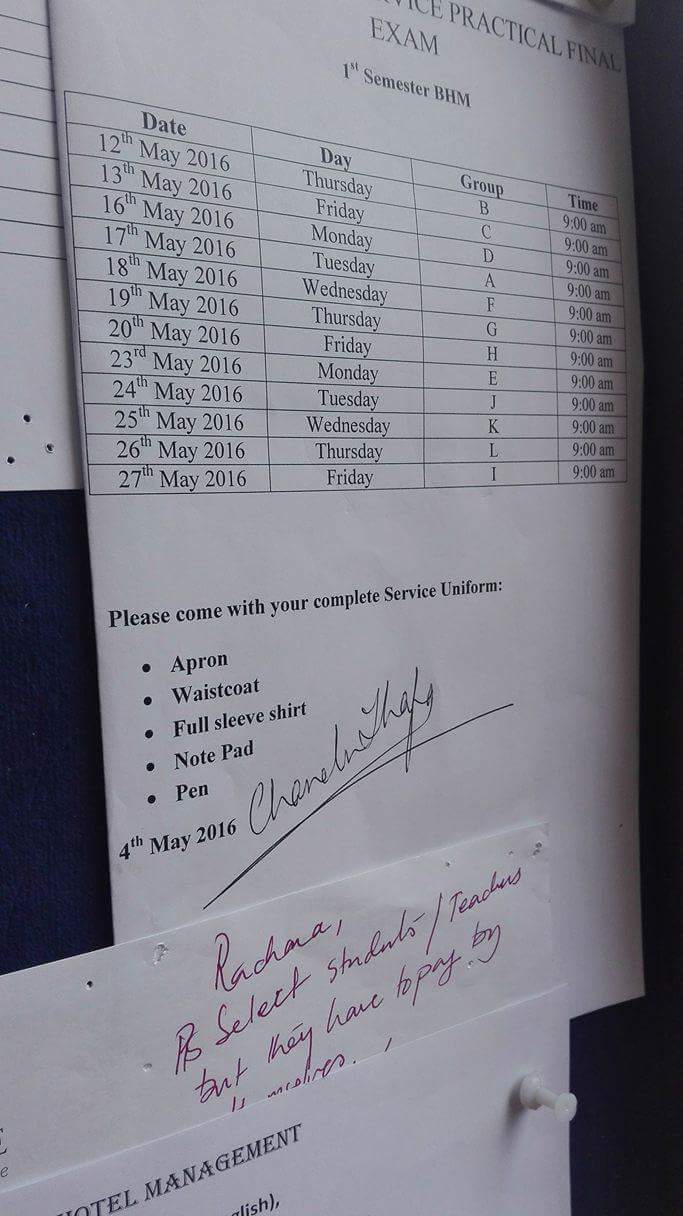 VICE PRACTICAL FINAL
EXAM
1st Semester BHM
Date Day Group Time
12th May 2016 Thursday B 9:00 am
13th May 2016 Friday C 9:00 am
16th May 2016 Monday D 9:00 am
17th May 2016 Tuesday A 9:00 am
18th May 2016 Wednesday F 9:00 am
19th May 2016 Thursday G 9:00 am
20th May 2016 Friday H 9:00 am
23rd May 2016 Monday E 9:00 am
24th May 2016 Tuesday J 9:00 am
25th May 2016 Wednesday K 9:00 am
26th May 2016 Thursday L 9:00 am
27th May 2016 Friday I 9:00 am
Please come with your complete Service Uniform:
• Apron
• Waistcoat
• Full sleeve shirt
• Note Pad
• Pen
4th May 2016
Rachana,
Pls Select students/Teachers
but they have to pay by
HOTEL MANAGEMENT
glish),